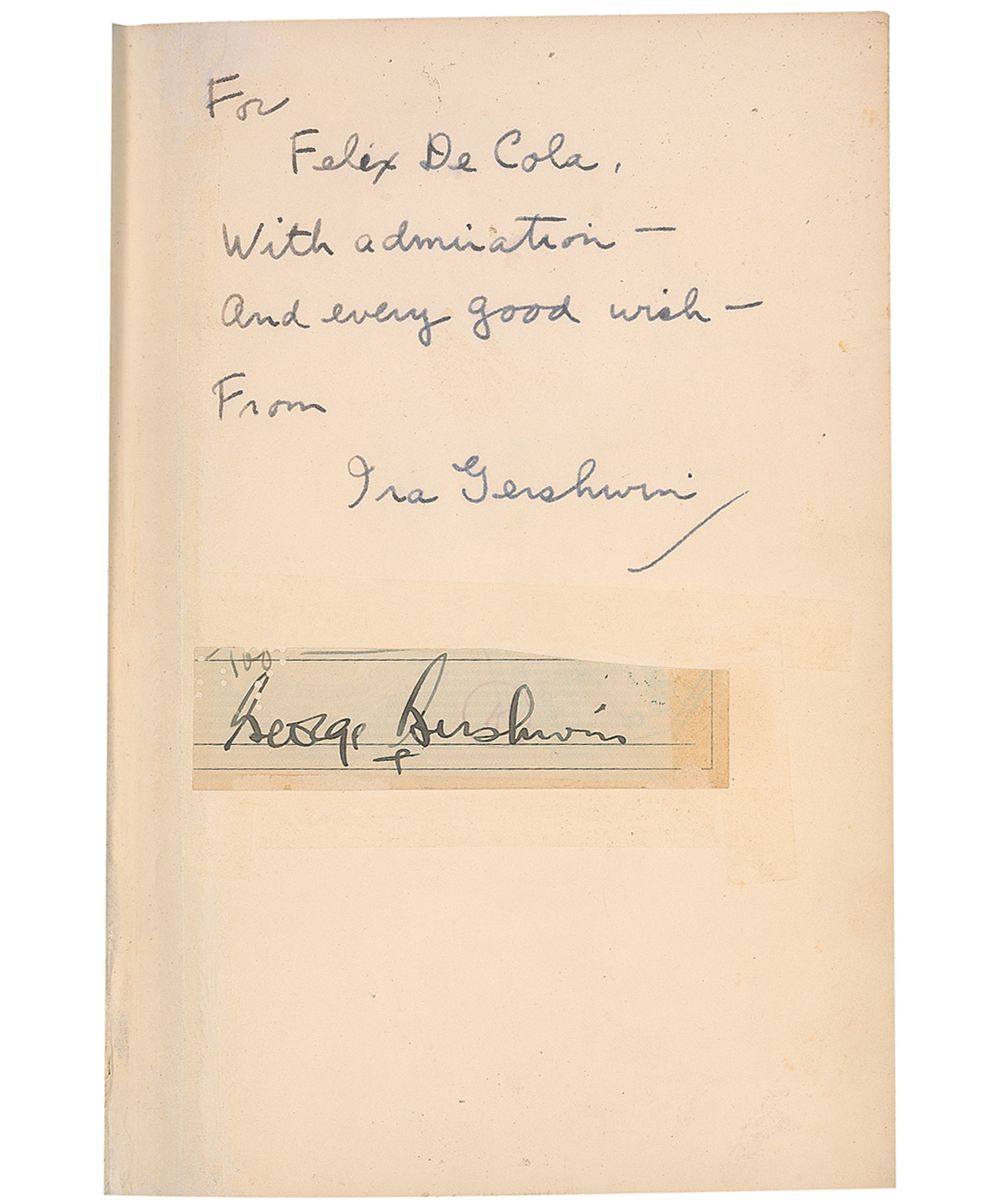 For
Felix De Cola,
With admiration —
And every good wish —
From
Ira Gershwin
100
George Gershwin